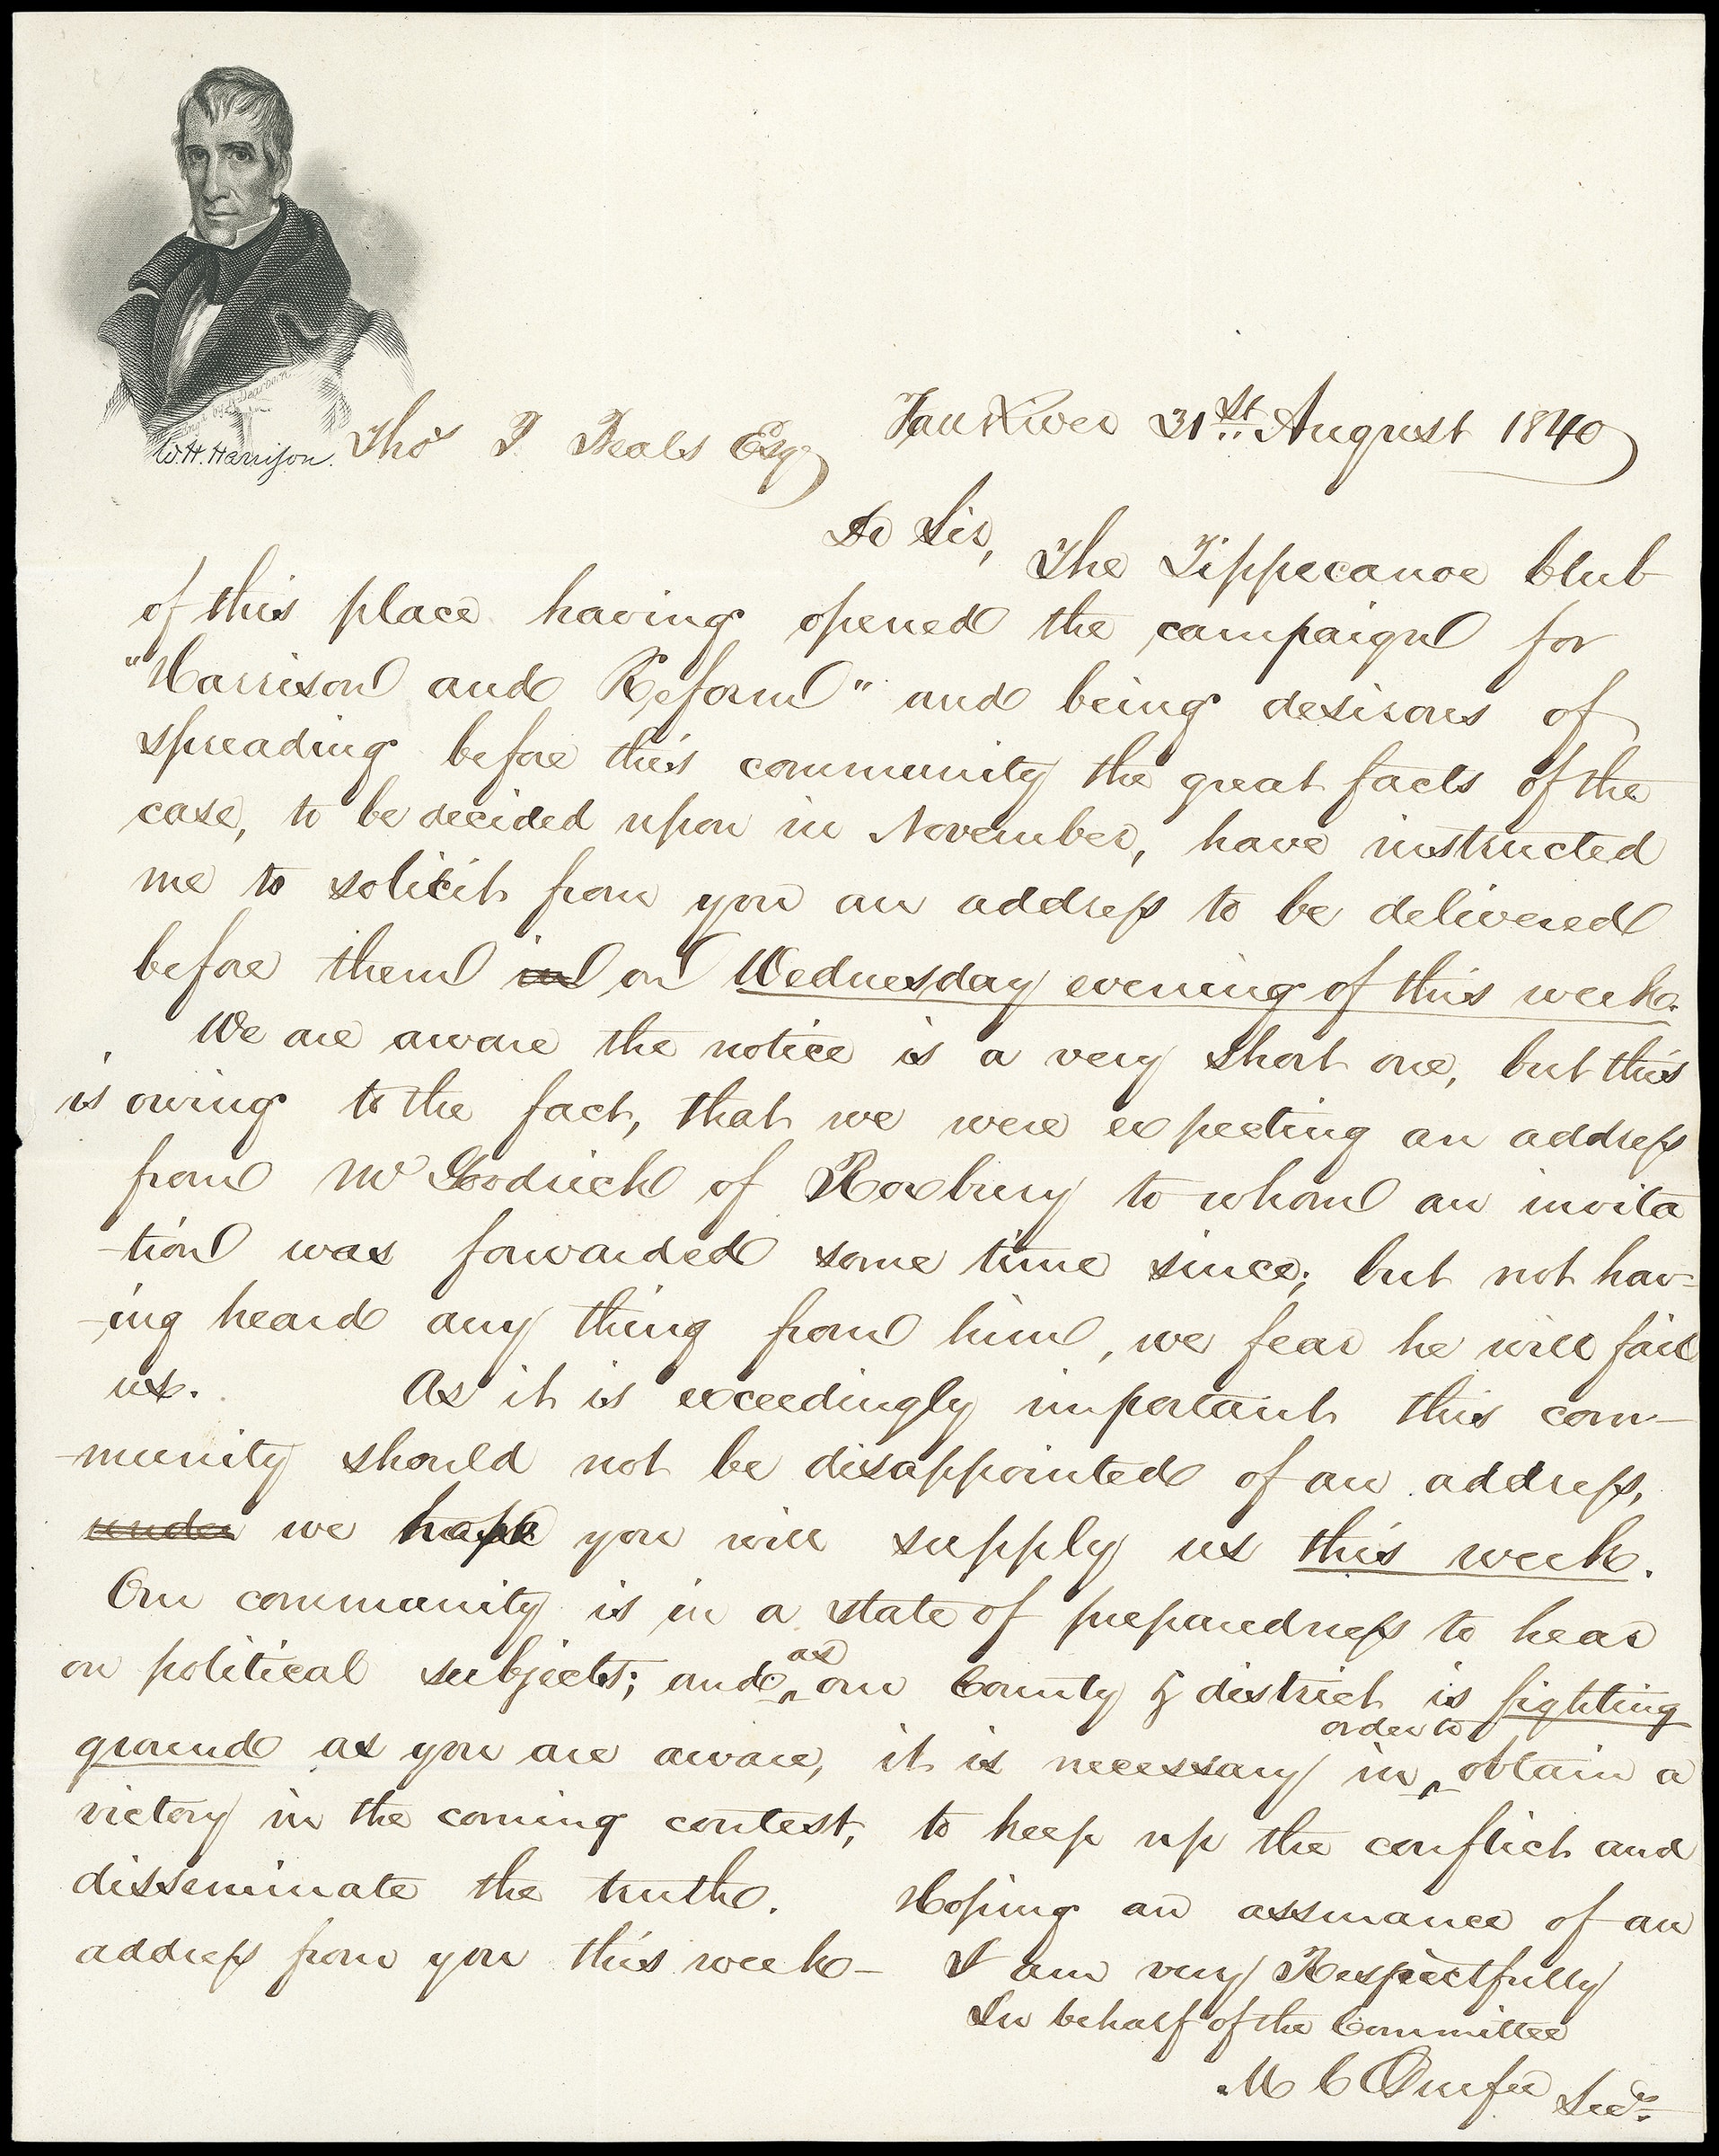 W.H. Harrison.
Thos P Beals Esq
Fall River 31st August 1840
Dr Sir,
The Tippecanoe Club
of this place having opened the campaign for
"Harrison and Reform" and being desirous of
spreading before this community the great facts of the
case, to be decided upon in November, have instructed
me to solicit from you an address to be delivered
before them in on Wednesday evening of this week.
We are aware the notice is a very short one, but this
is owing to the fact, that we were expecting an address
from Mr Goodrich of Roxbury to whom an invita
-tion was forwarded some time since; but not hav-
-ing heard any thing from him, we fear he will fail
us. As it is exceedingly important this com-
-munity should not be disappointed of an address,
under we hope you will supply us this week.
Our community is in a state of preparedness to hear
on political subjects; and as our County & district is fighting
ground as you are aware, it is necessary in order to obtain a
victory in the coming contest, to keep up the conflict and
disseminate the truth. Hoping an assurance of an
address from you this week- I am very Respectfully
In behalf of the Committee
M C Secy